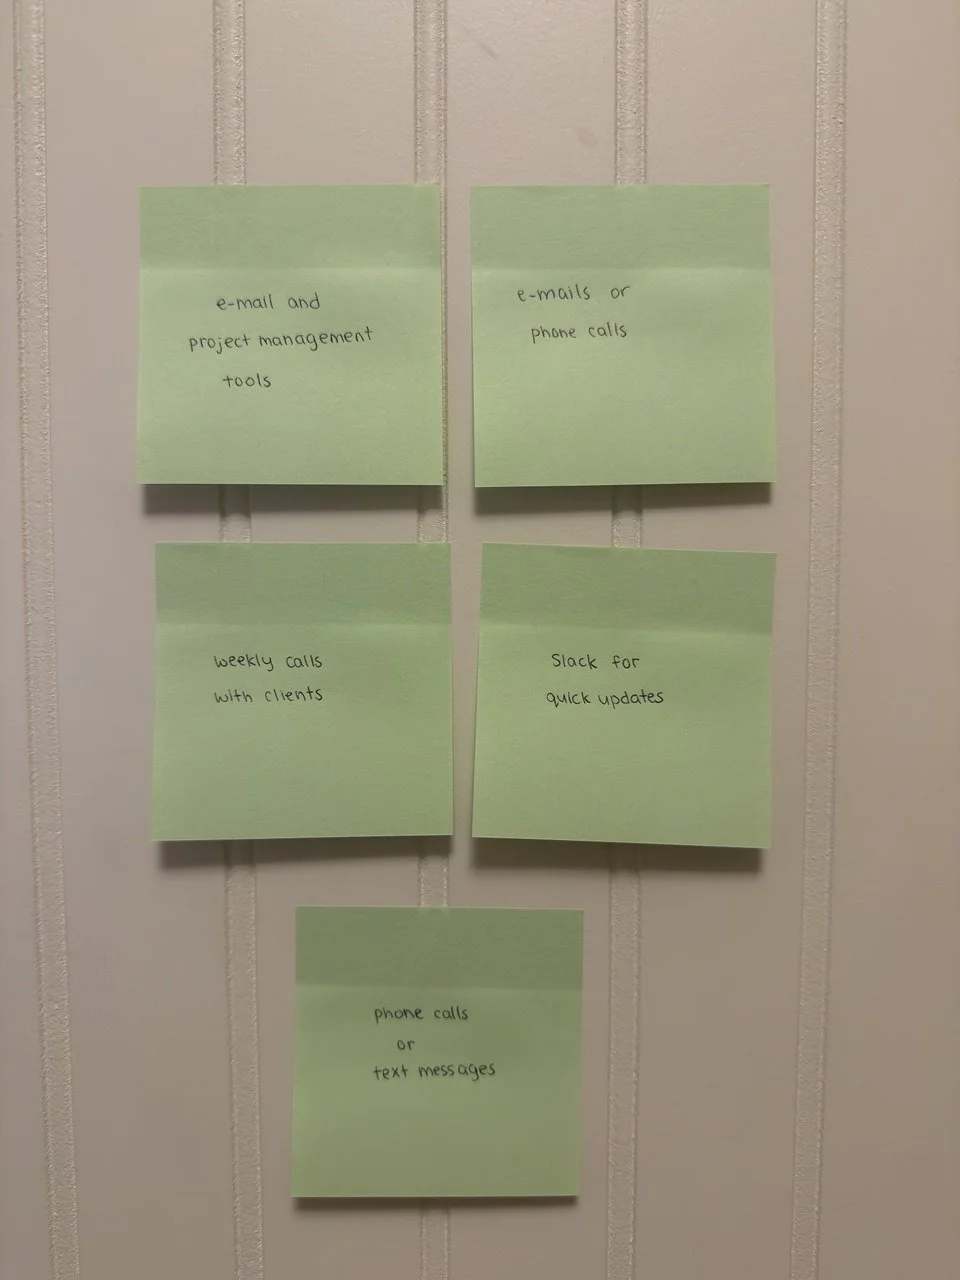 e-mail and
project management
tools
e-mails or
phone calls
weekly calls
with clients
Slack for
quick updates
phone calls
or
text messages